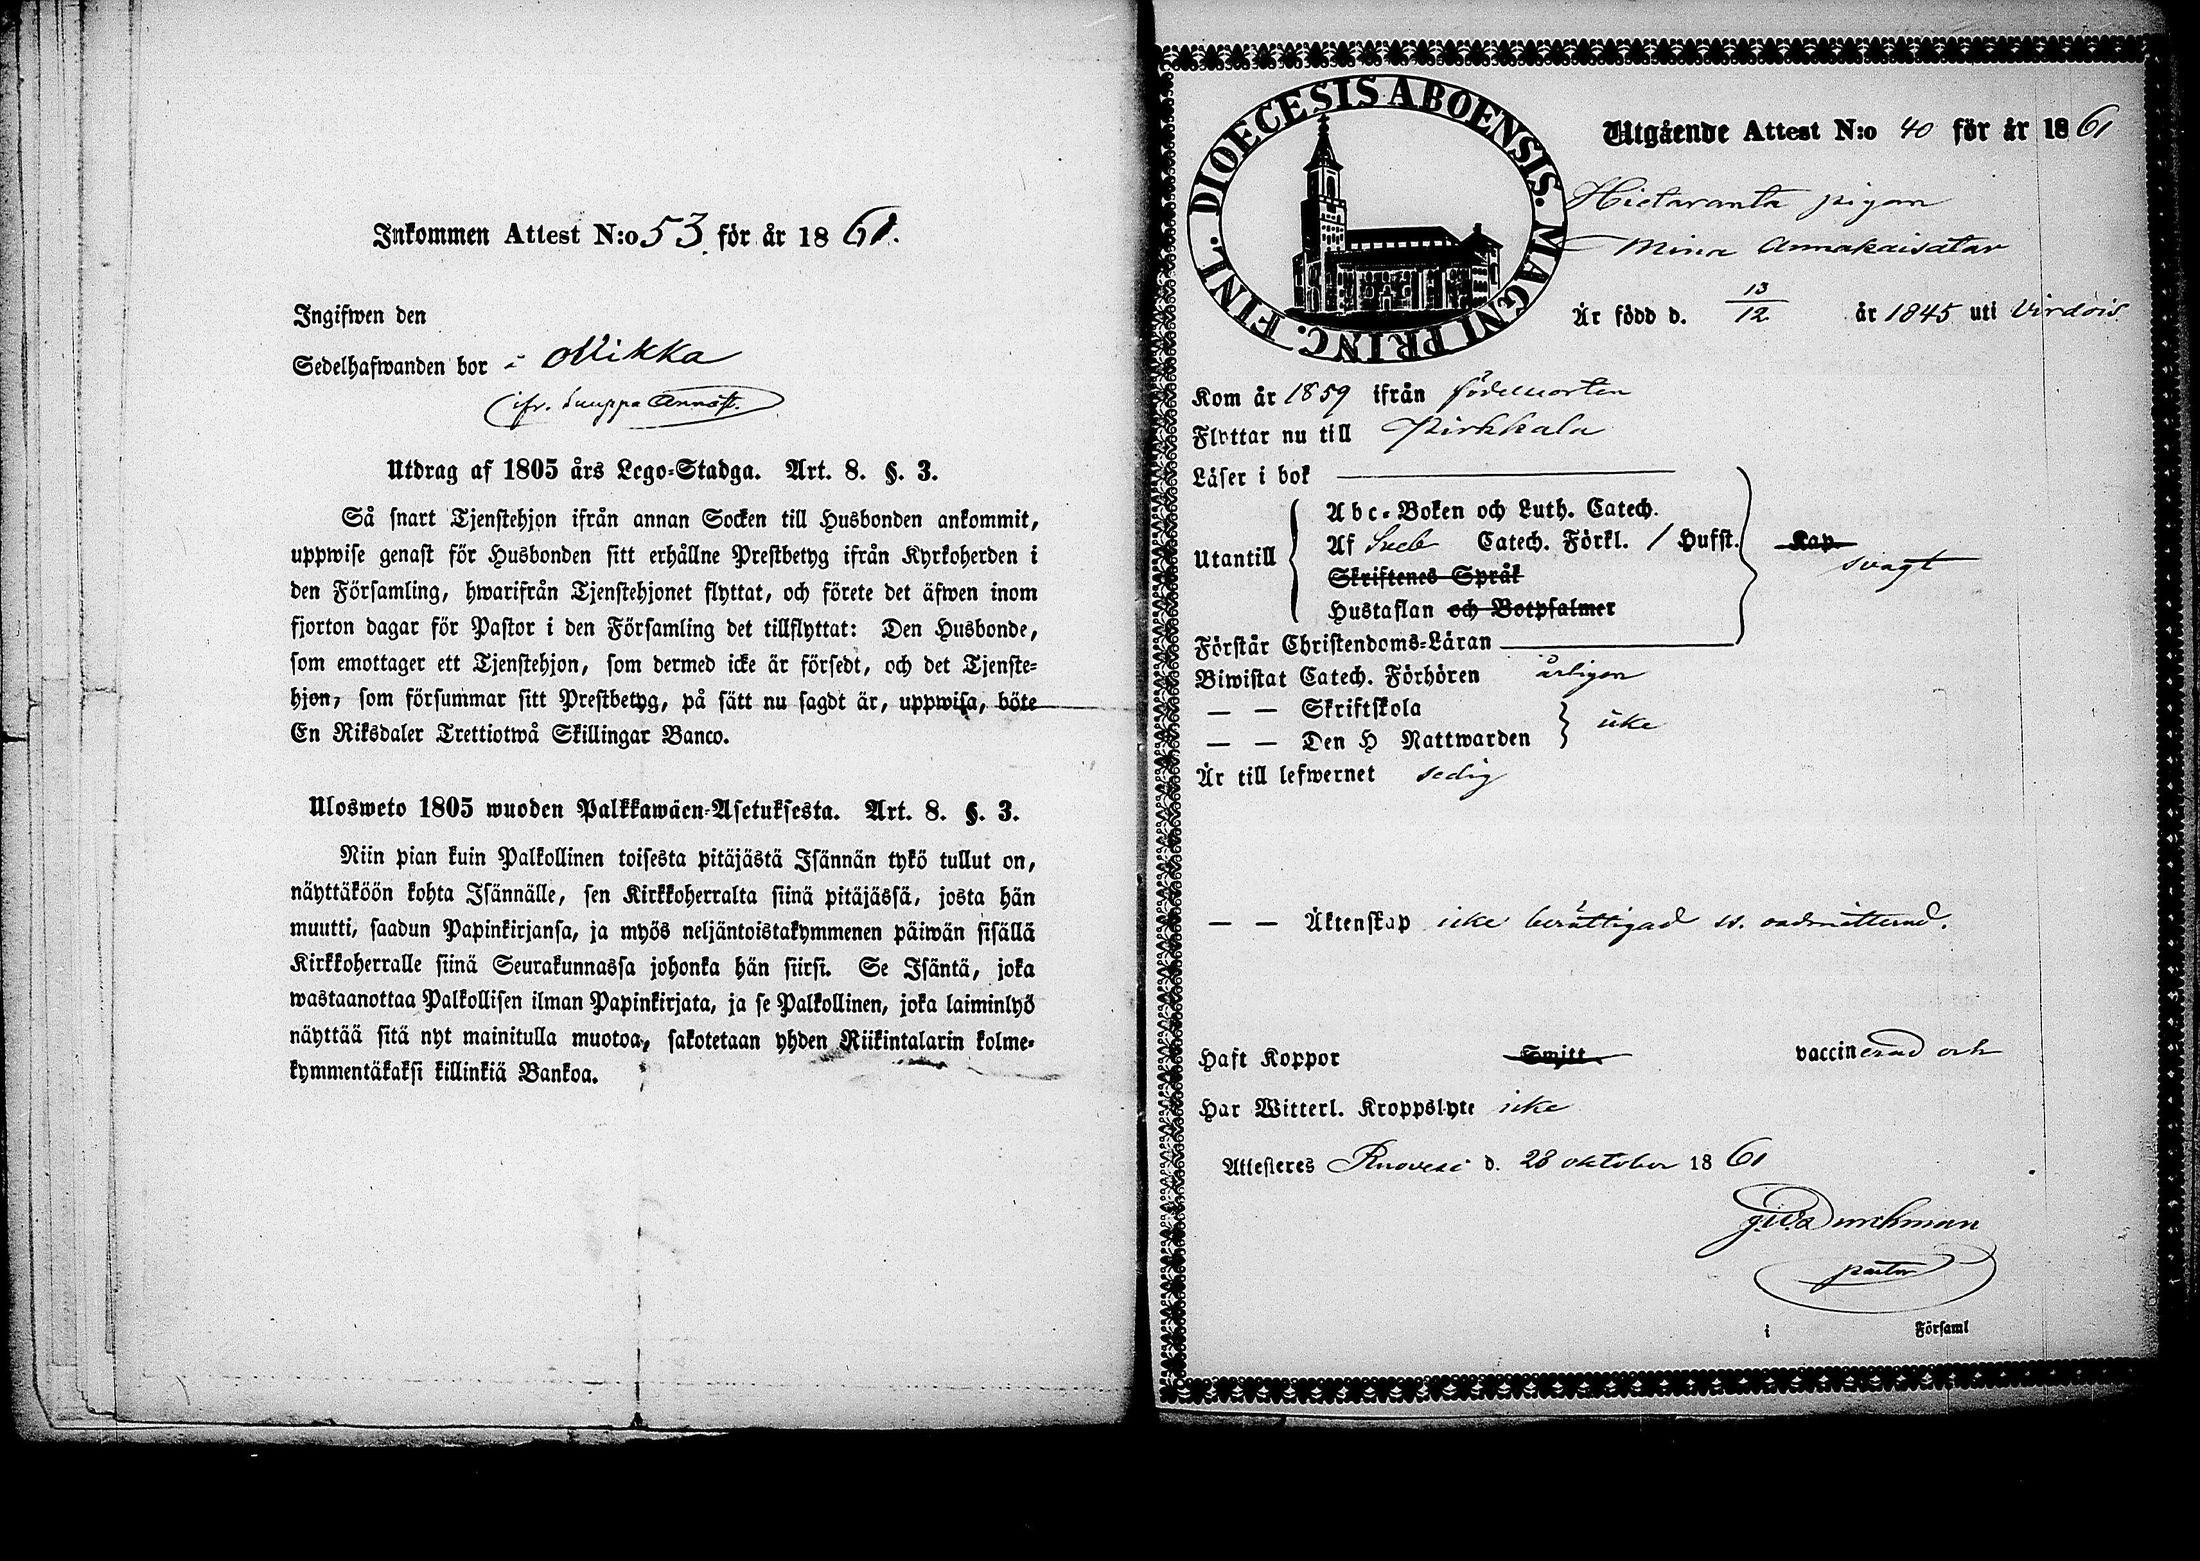 Inkommen Attest N:o 53. för år 1861.
Ingifwen den
Sedelhafwanden bor i Mikka
Utdrag af 1805 års Lego-Stadga. Art. 8. §. 3.
Så snart Tjenstehjon ifrån annan Socken till Husbonden ankommit,
uppwise genast för Husbonden sitt erhållne Prestbetyg ifrån Kyrkoherden i
den Församling, hwarifrån Tjenstehjonet flyttat, och förete det äfwen inom
fjorton dagar för Pastor i den Församling det tillflyttat: Den Husbonde,
som emottager ett Tjenstehjon, som dermed icke är försedt, och det Tjenste-
hjon, som försummar sitt Prestbetyg, på sätt nu sagdt är, uppwisa, böte
En Riksdaler Trettiotwå Skillingar Banco.
Ulosweto 1805 wuoden Palkkawäen-Asetuksesta. Art. 8. §. 3.
Niin pian kuin Palkollinen toisesta pitäjästä Isännän tykö tullut on,
näyttäköön kohta Isännälle, sen Kirkkoherralta siinä pitäjässä, josta hän
muutti, saadun Papinkirjansa, ja myös neljäntoistakymmenen päiwän sisällä
Kirkkoherralle siinä Seurakunnassa johonka hän siirsi. Se Isäntä, joka
wastaanottaa Palkollisen ilman Papinkirjata, ja se Palkollinen, joka laiminlyö
näyttää sitä nyt mainitulla muotoa, sakotetaan yhden Riikintalarin kolme-
kymmentäkaksi killinkiä Bankoa.
DIOECESIS ABOENSIS. MAGNI PRINC. FINL.
Utgående Attest N:o 40 för år 1861
Hietaranta pigan
Mina Annakaisatar
Är född d. 13/12 år 1845 uti Virdois
Kom år 1859 ifrån födelseorten
Flyttar nu till Pirkkala
Läser i bok
Utantill
Abc-Boken och Luth. Catech.
Af Sveb Catech. Förkl. / Hufst. Kap
svagt
Skriftenes Språk
Hustaflan och Botpsalmer
Förstår Christendoms-Läran
Biwistat Catech. Förhören årligen
— — Skriftskola
icke
— — Den H Nattwarden
Är till lefwernet sedig
— — Äktenskap icke berättigad
Haft Koppor Smitt. vaccinerad och
Har Witterl. Kroppslyte icke
Attesteres Ruovesi d. 28 oktober 1861
Durchman
pastor
i Församl